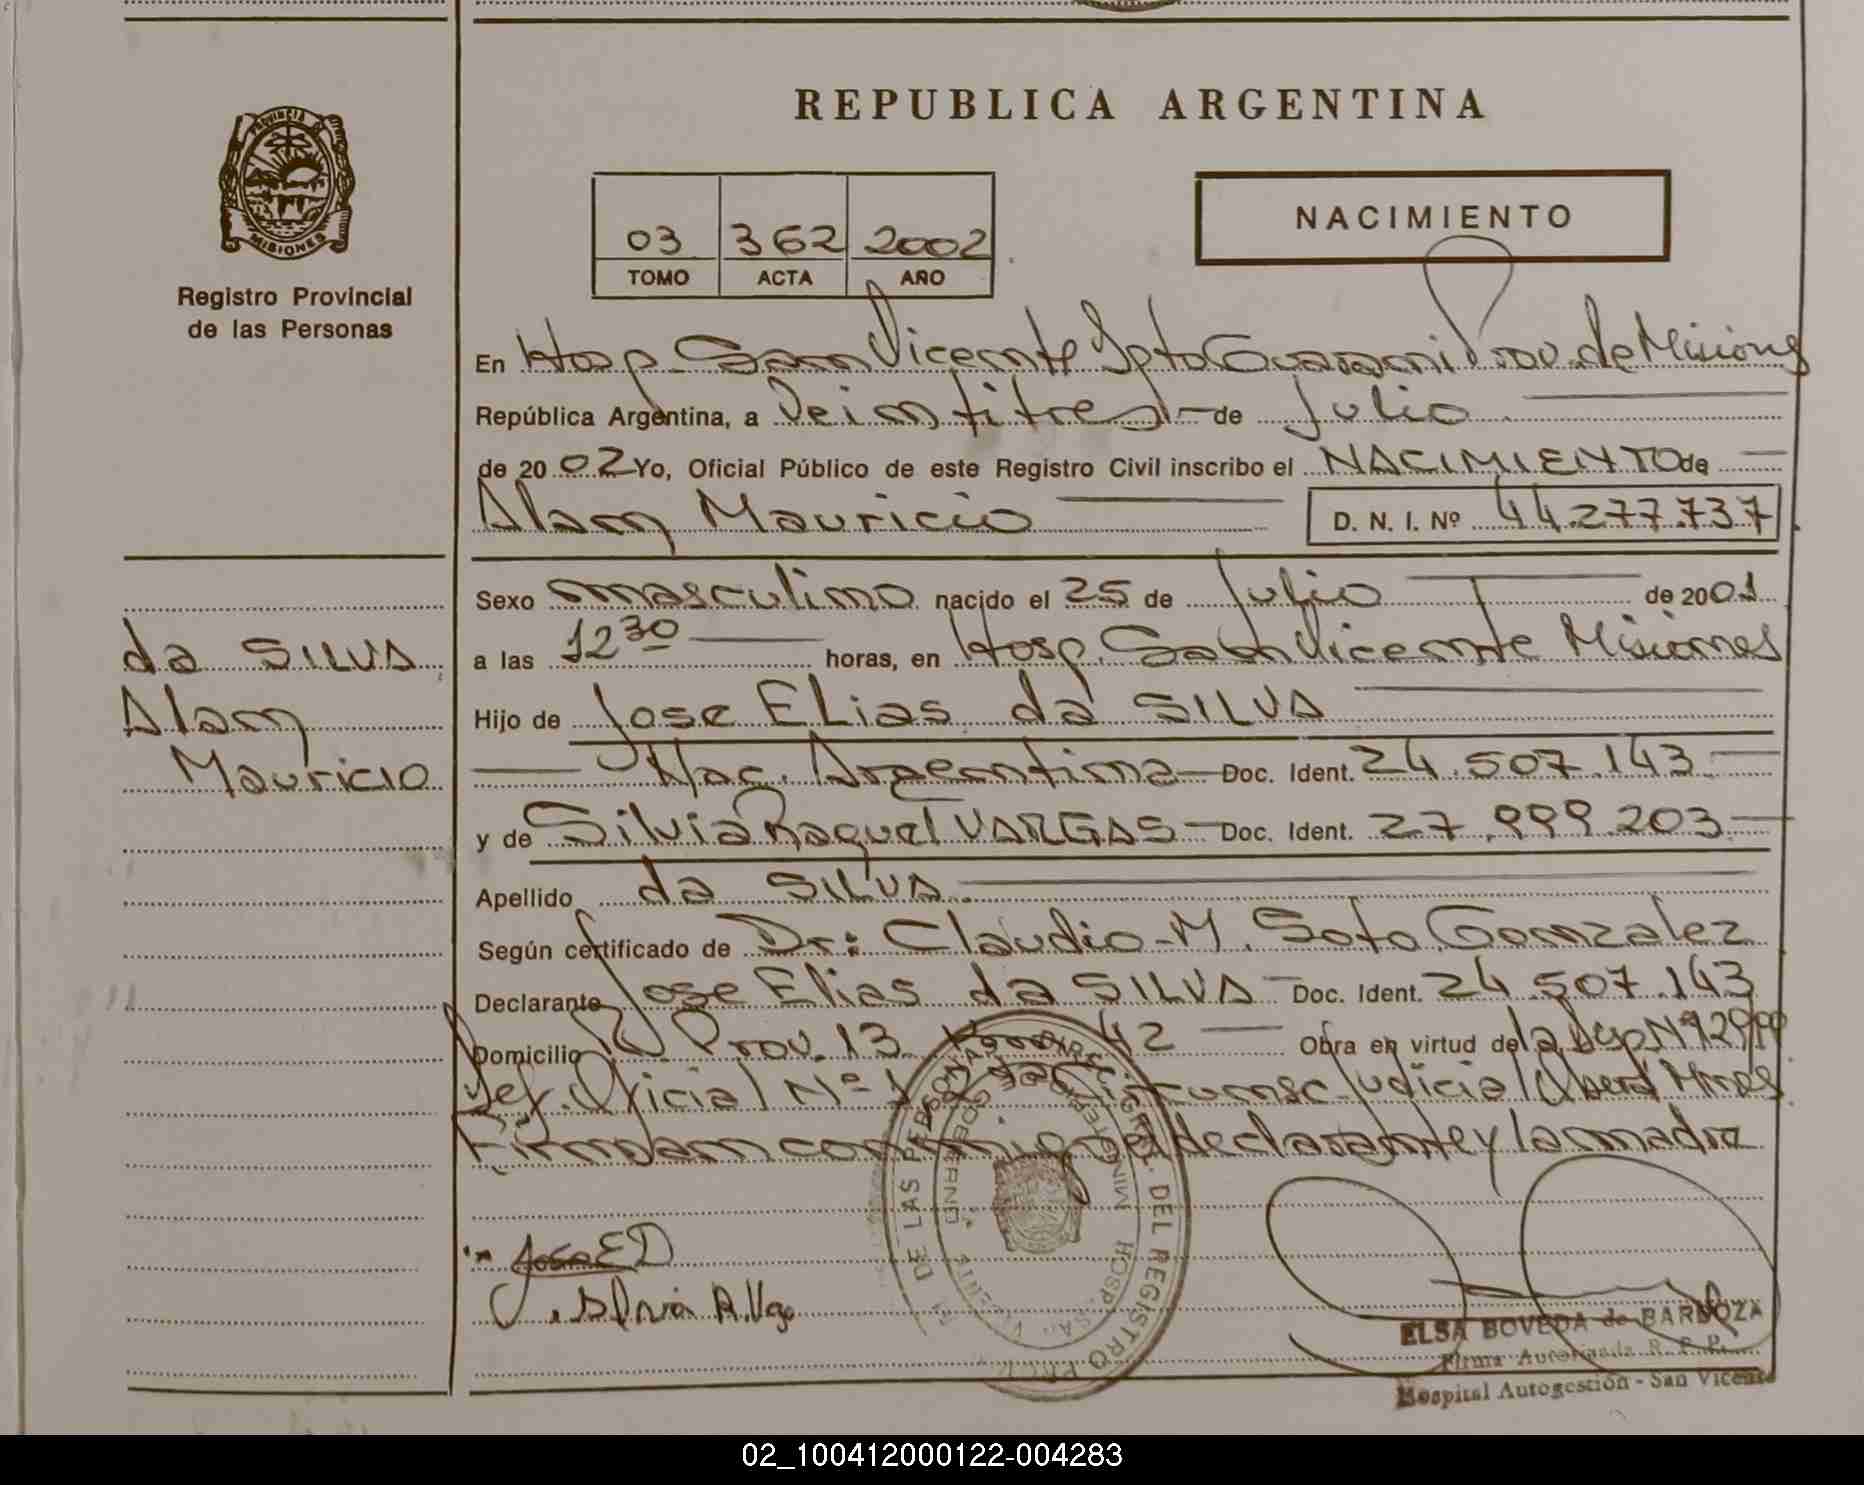 REPUBLICA ARGENTINA
PROVINCIA DE
MISIONES
Registro Provincial
de las Personas
03 362 2002
TOMO ACTA AÑO
NACIMIENTO
En Hosp. San Vicente Dpto Guarani Prov. de Misiones
República Argentina, a Veintitres de Julio
de 2002 Yo, Oficial Público de este Registro Civil inscribo el NACIMIENTO de
Alan Mauricio D. N. I. Nº 44.277.737
Sexo masculino nacido el 25 de Julio de 2001
a las 12 30 horas, en Hosp. San Vicente Misiones
Hijo de Jose ELias da SILVA
Nac. Argentina Doc. Ident. 24.507.143
y de Silvia Raquel VARGAS Doc. Ident. 27.999.203
Apellido da SILVA
Según certificado de Dr: Claudio M. Soto Gonzalez
Declarante Jose Elias da SILVA Doc. Ident. 24.507.143
Domicilio R. Prov. 13 42 Obra en virtud de la Nº
Def. Oficial Nº 1 Judicial Obera Mnes
Firman conmigo el declarante y la madre
da SILVA
Alan
Mauricio
Jose E D
Silvia R. Vargas
DE LAS PERSONAS
DEL REGISTRO
HOSP. SAN VICENTE
ELSA BOVEDA de BARBOZA
Firma Autorizada R. P. P.
Hospital Autogestión - San Vicente
02_100412000122-004283